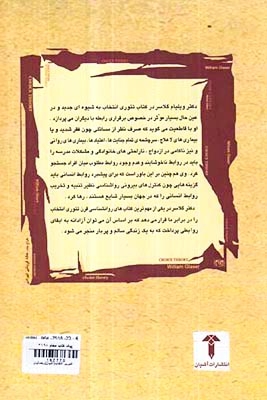 دکتر ویلیام گلاسر در کتاب تئوری انتخاب به شیوه ای جدید و در
عین حال بسیار موثر در خصوص برقراری رابطه با دیگران می پردازد.
او با قاطعیت می گوید که صرف نظر از مسائلی چون فقر شدید و یا
بیماری های لا علاج، سرچشمه ی تمام جنایت ها، اعتیادها، بیماری های روانی
و نیز ناکامی در ازدواج، نارضایتی های خانوادگی و مشکلات مدرسه را
باید در روابط ناخوشایند و عدم وجود روابط مطلوب میان افراد جستجو
کرد. وی هم چنین بر این باور است که برای پیشبرد روابط انسانی باید
گزینه هایی چون کنترل های بیرونی روانشناسی نظیر تنبیه و تخریب
روابط انسانی را که در جهان بسیار شایع هستند، رها کرد.
دکتر گلاسر در یکی از مهم ترین کتاب های روانشناسی قرن تئوری انتخاب
را در برابر ما قرار می دهد که بر اساس آن می توان آزادانه به ایفای
روابطی پرداخت که به یک زندگی سالم و پربار منجر می شود.
CHOICE THEORY
William Glasser
انتشارات آشیان